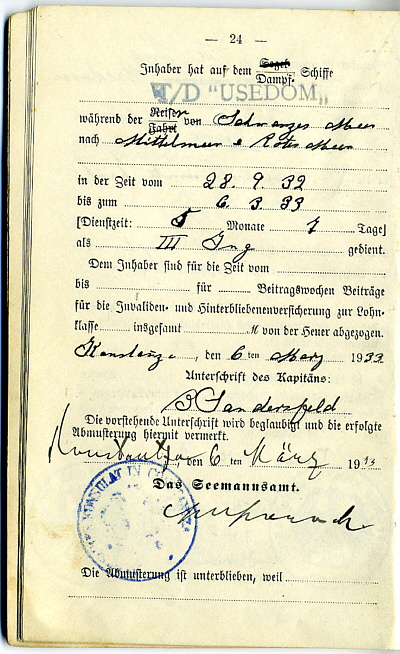 — 24 —
Inhaber hat auf dem Segel- Schiffe
Dampf-
T/D "USEDOM"
während der Reise von Schwarzes Meer
Fahrt
nach Mittelmeer & Rotes Meer
in der Zeit vom 28. 9. 32
bis zum 6. 3. 33
[Dienstzeit: 5 Monate 7 Tage]
als III Ing gedient.
Dem Inhaber sind für die Zeit vom
bis für Beitragswochen Beiträge
für die Invaliden- und Hinterbliebenenversicherung zur Lohn-
klasse insgesamt M von der Heuer abgezogen.
Konstanza, den 6 ten März 1933
Unterschrift des Kapitäns:
Sandersfeld
Die vorstehende Unterschrift wird beglaubigt und die erfolgte
Abmusterung hiermit vermerkt.
Konstantza, den 6 ten März 1933
Das Seemannsamt.
KONSULAT IN
Die Abmusterung ist unterblieben, weil